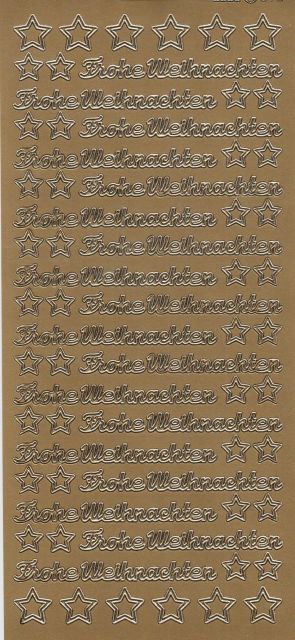 Frohe Weihnachten
Frohe Weihnachten
Frohe Weihnachten
Frohe Weihnachten
Frohe Weihnachten
Frohe Weihnachten
Frohe Weihnachten
Frohe Weihnachten
Frohe Weihnachten
Frohe Weihnachten
Frohe Weihnachten
Frohe Weihnachten
Frohe Weihnachten
Frohe Weihnachten
Frohe Weihnachten
Frohe Weihnachten
Frohe Weihnachten
Frohe Weihnachten